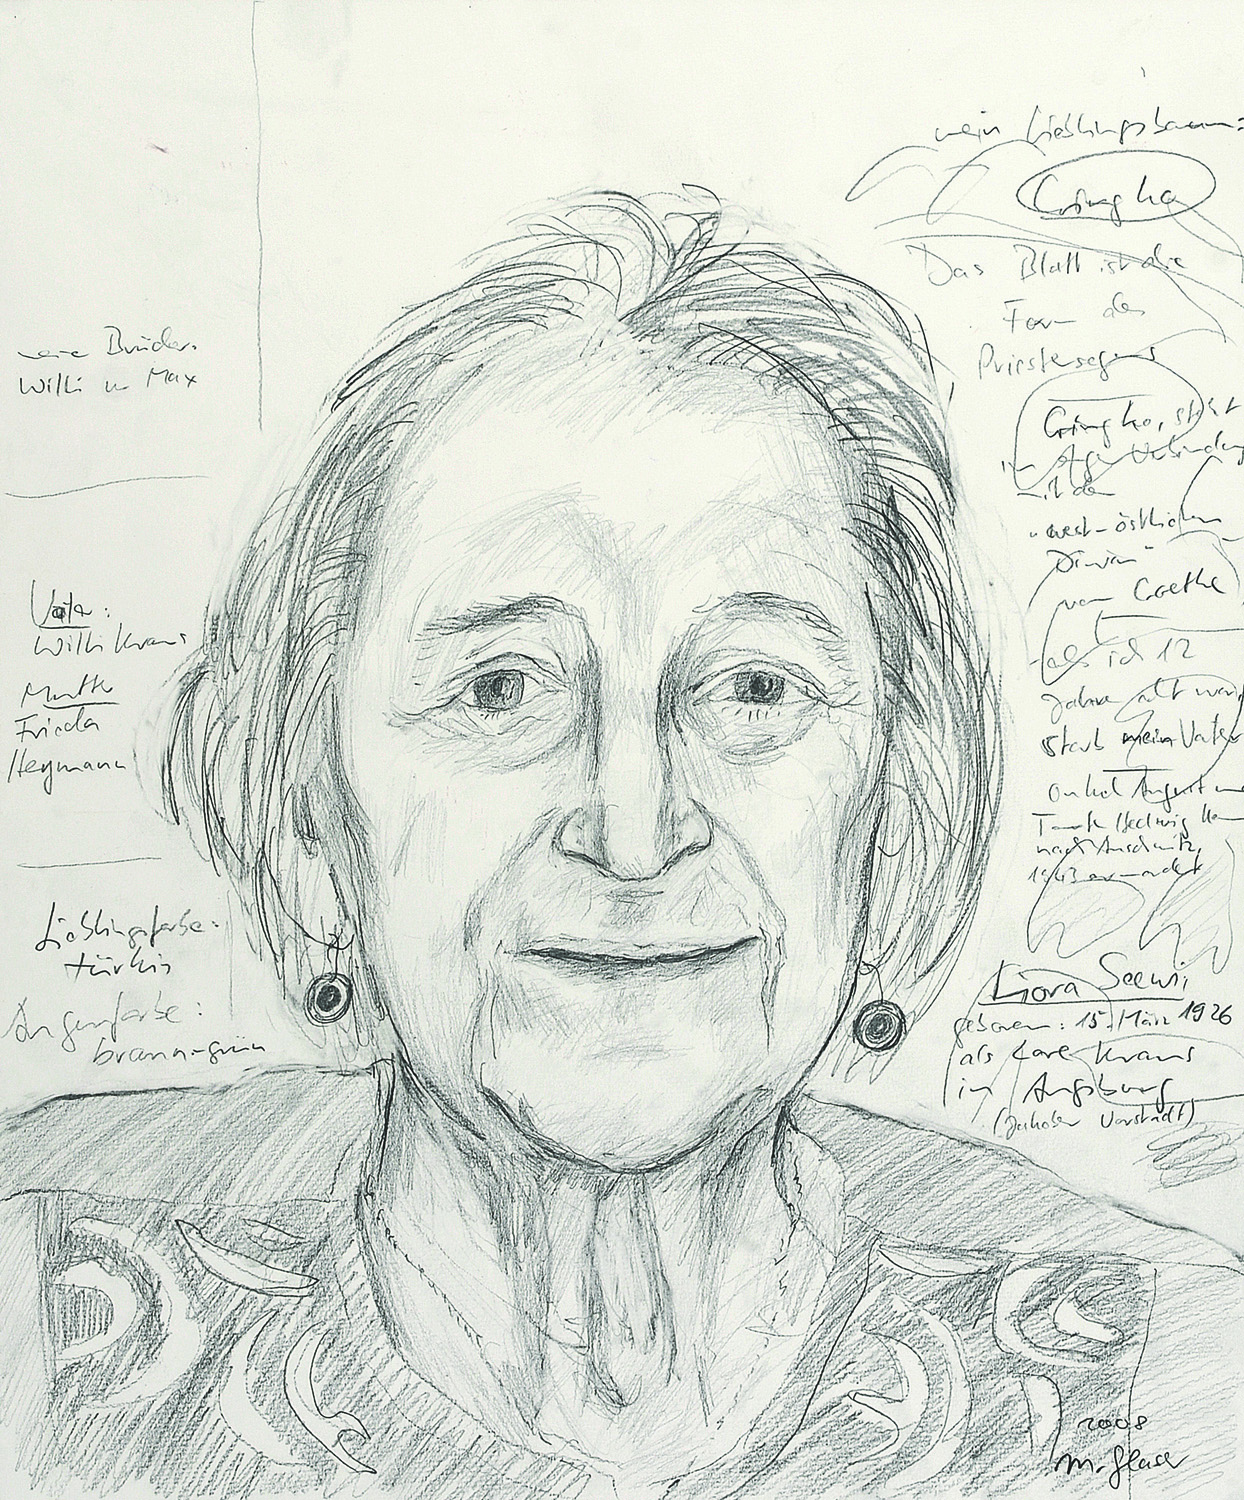 meine Brüder.
Willi u. Max
Vater:
Willi Kraus
Mutter
Frieda
Heymann
Lieblingsfarbe:
türkis
Augenfarbe:
braun-grün
mein Lieblingsbaum:
Gingko
Das Blatt ist die
Form des
Priestersegens
Gingko, steht
in Verbindung
mit dem
"west-östlichen
Divan"
von Goethe
als ich 12
Jahre alt war,
starb mein Vater
Onkel August
Tante Hedwig
nach Auschwitz,
1943 ermordet
Liora Seewi,
geboren: 15. März 1926
als Lore Kraus
in Augsburg
(Jakober Vorstadt)
2008
M. Glaser